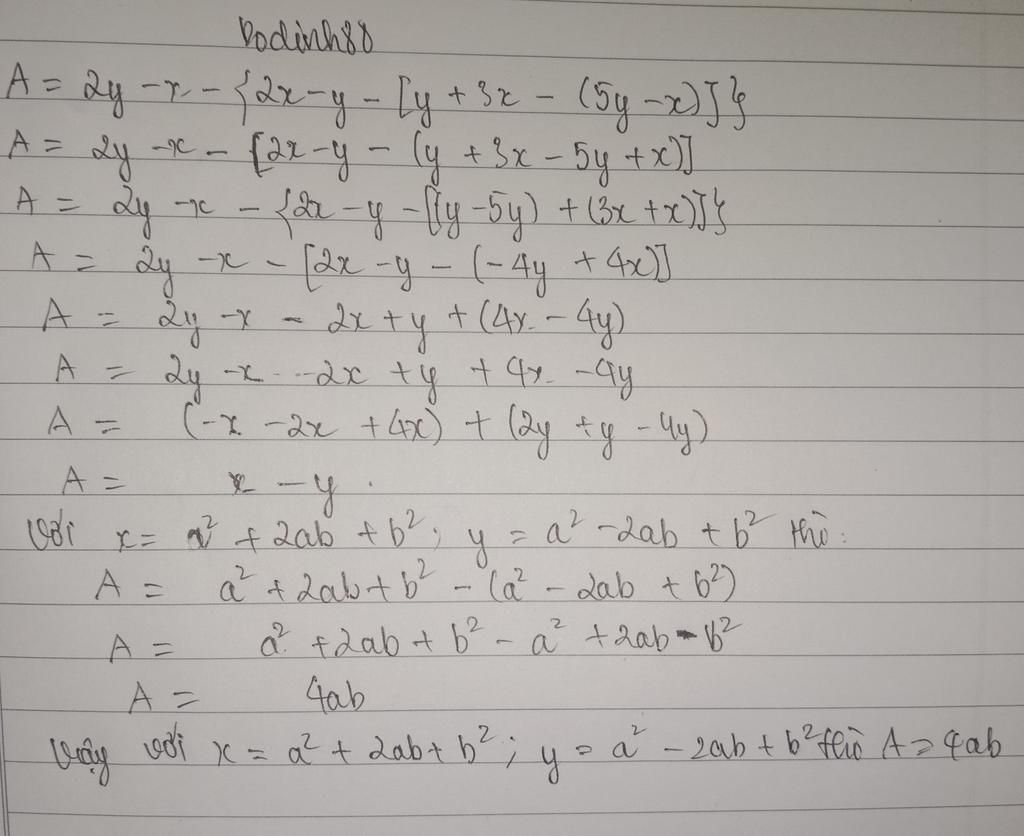 Dodinh88
A = 2y - x - {2x - y - [y + 3x - (5y - x)]}
A = 2y - x - [2x - y - (y + 3x - 5y + x)]
A = 2y - x - {2x - y - [(y - 5y) + (3x + x)]}
A = 2y - x - [2x - y - (-4y + 4x)]
A = 2y - x - 2x + y + (4x - 4y)
A = 2y - x - 2x + y + 4x - 4y
A = (-x - 2x + 4x) + (2y + y - 4y)
A = x - y.
Với x = a² + 2ab + b²; y = a² - 2ab + b² thì:
A = a² + 2ab + b² - (a² - 2ab + b²)
A = a² + 2ab + b² - a² + 2ab - b²
A = 4ab
Vậy với x = a² + 2ab + b²; y = a² - 2ab + b² thì A = 4ab